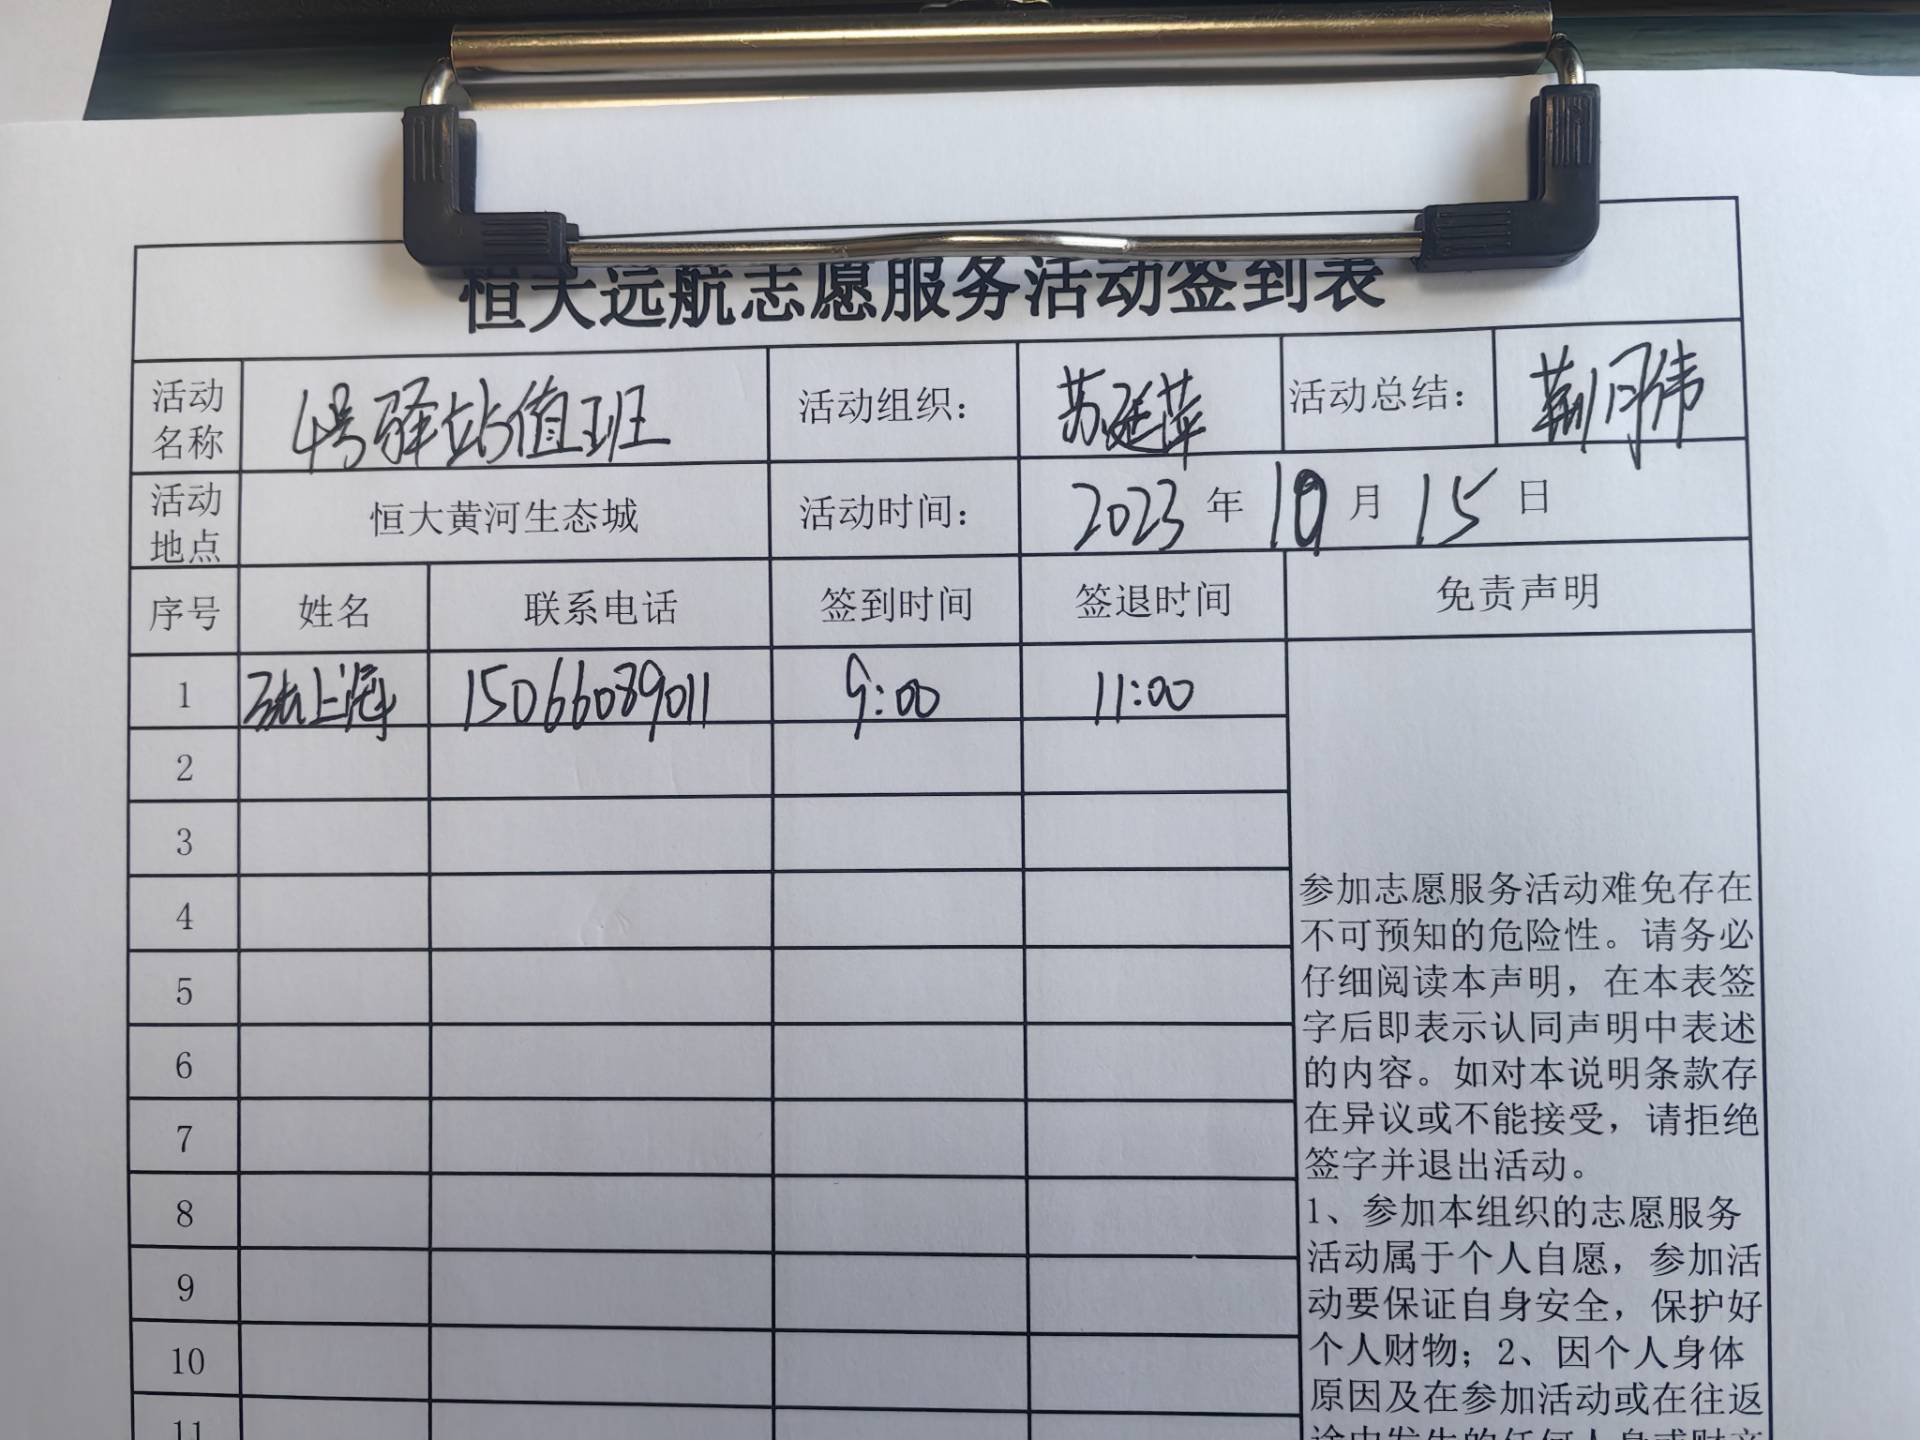 恒大远航志愿服务活动签到表
活动名称 4号驿站值班 活动组织： 苏廷萍 活动总结： 荆月伟
活动地点 恒大黄河生态城 活动时间： 2023年10月15日
序号 姓名 联系电话 签到时间 签退时间 免责声明
1 上海 15066089011 9:00 11:00
2
3
4
5
6
7
8
9
10
11
参加志愿服务活动难免存在
不可预知的危险性。请务必
仔细阅读本声明，在本表签
字后即表示认同声明中表述
的内容。如对本说明条款存
在异议或不能接受，请拒绝
签字并退出活动。
1、参加本组织的志愿服务
活动属于个人自愿，参加活
动要保证自身安全，保护好
个人财物；2、因个人身体
原因及在参加活动或在往返
途中发生的任何人身或财产